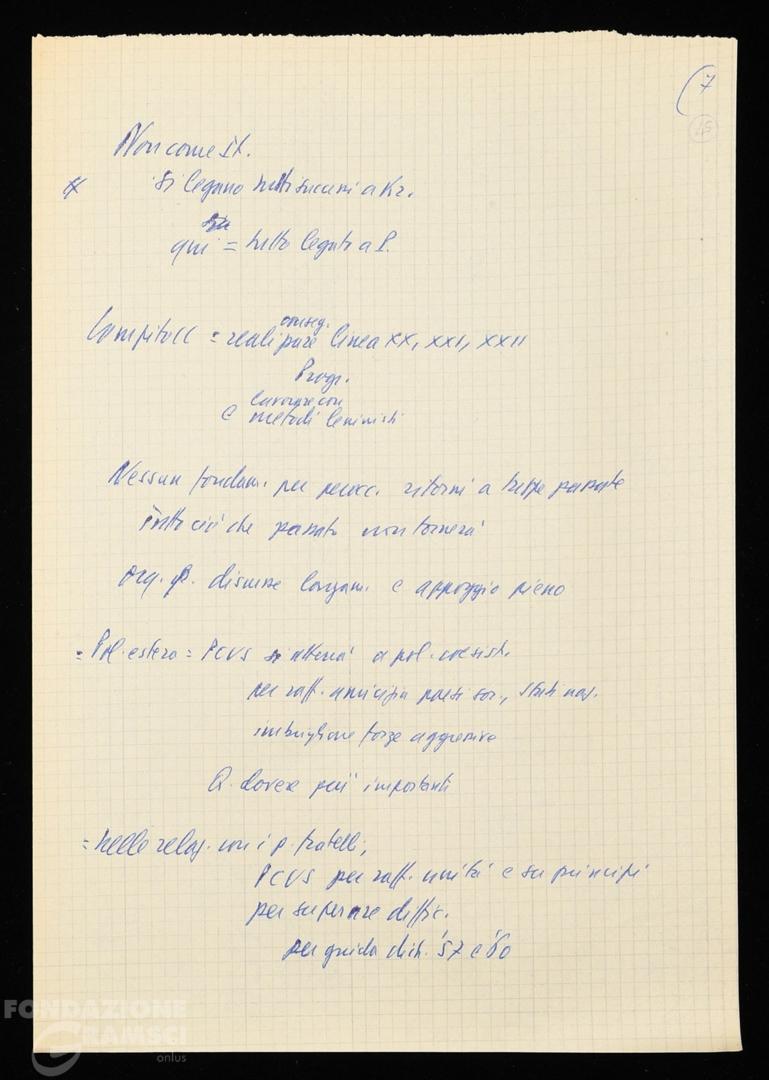 (7
45
Non come St.
# si legano tutti successi a Kr.
qui = tutto legato a P.
Compito CC =
conseg.
linea XX, XXI, XXII
Progr.
lavorare con
e metodi leninisti
Nessun fondam. per preocc. ritorni a tappe passate
tutto ciò che passato non tornerà
org. p. discusse lungam. e appoggio pieno
= Pol. estera = PCUS si atterrà a pol. coesist.
per raff. amicizia paesi soc., stati naz.
imbrigliare forze aggressive
Q. dovere più importanti
= nelle relaz. con i p. fratelli,
PCUS per raff. unità e su principi
per superare diffic.
per guida dich. '57 e '60
FONDAZIONE
GRAMSCI
onlus